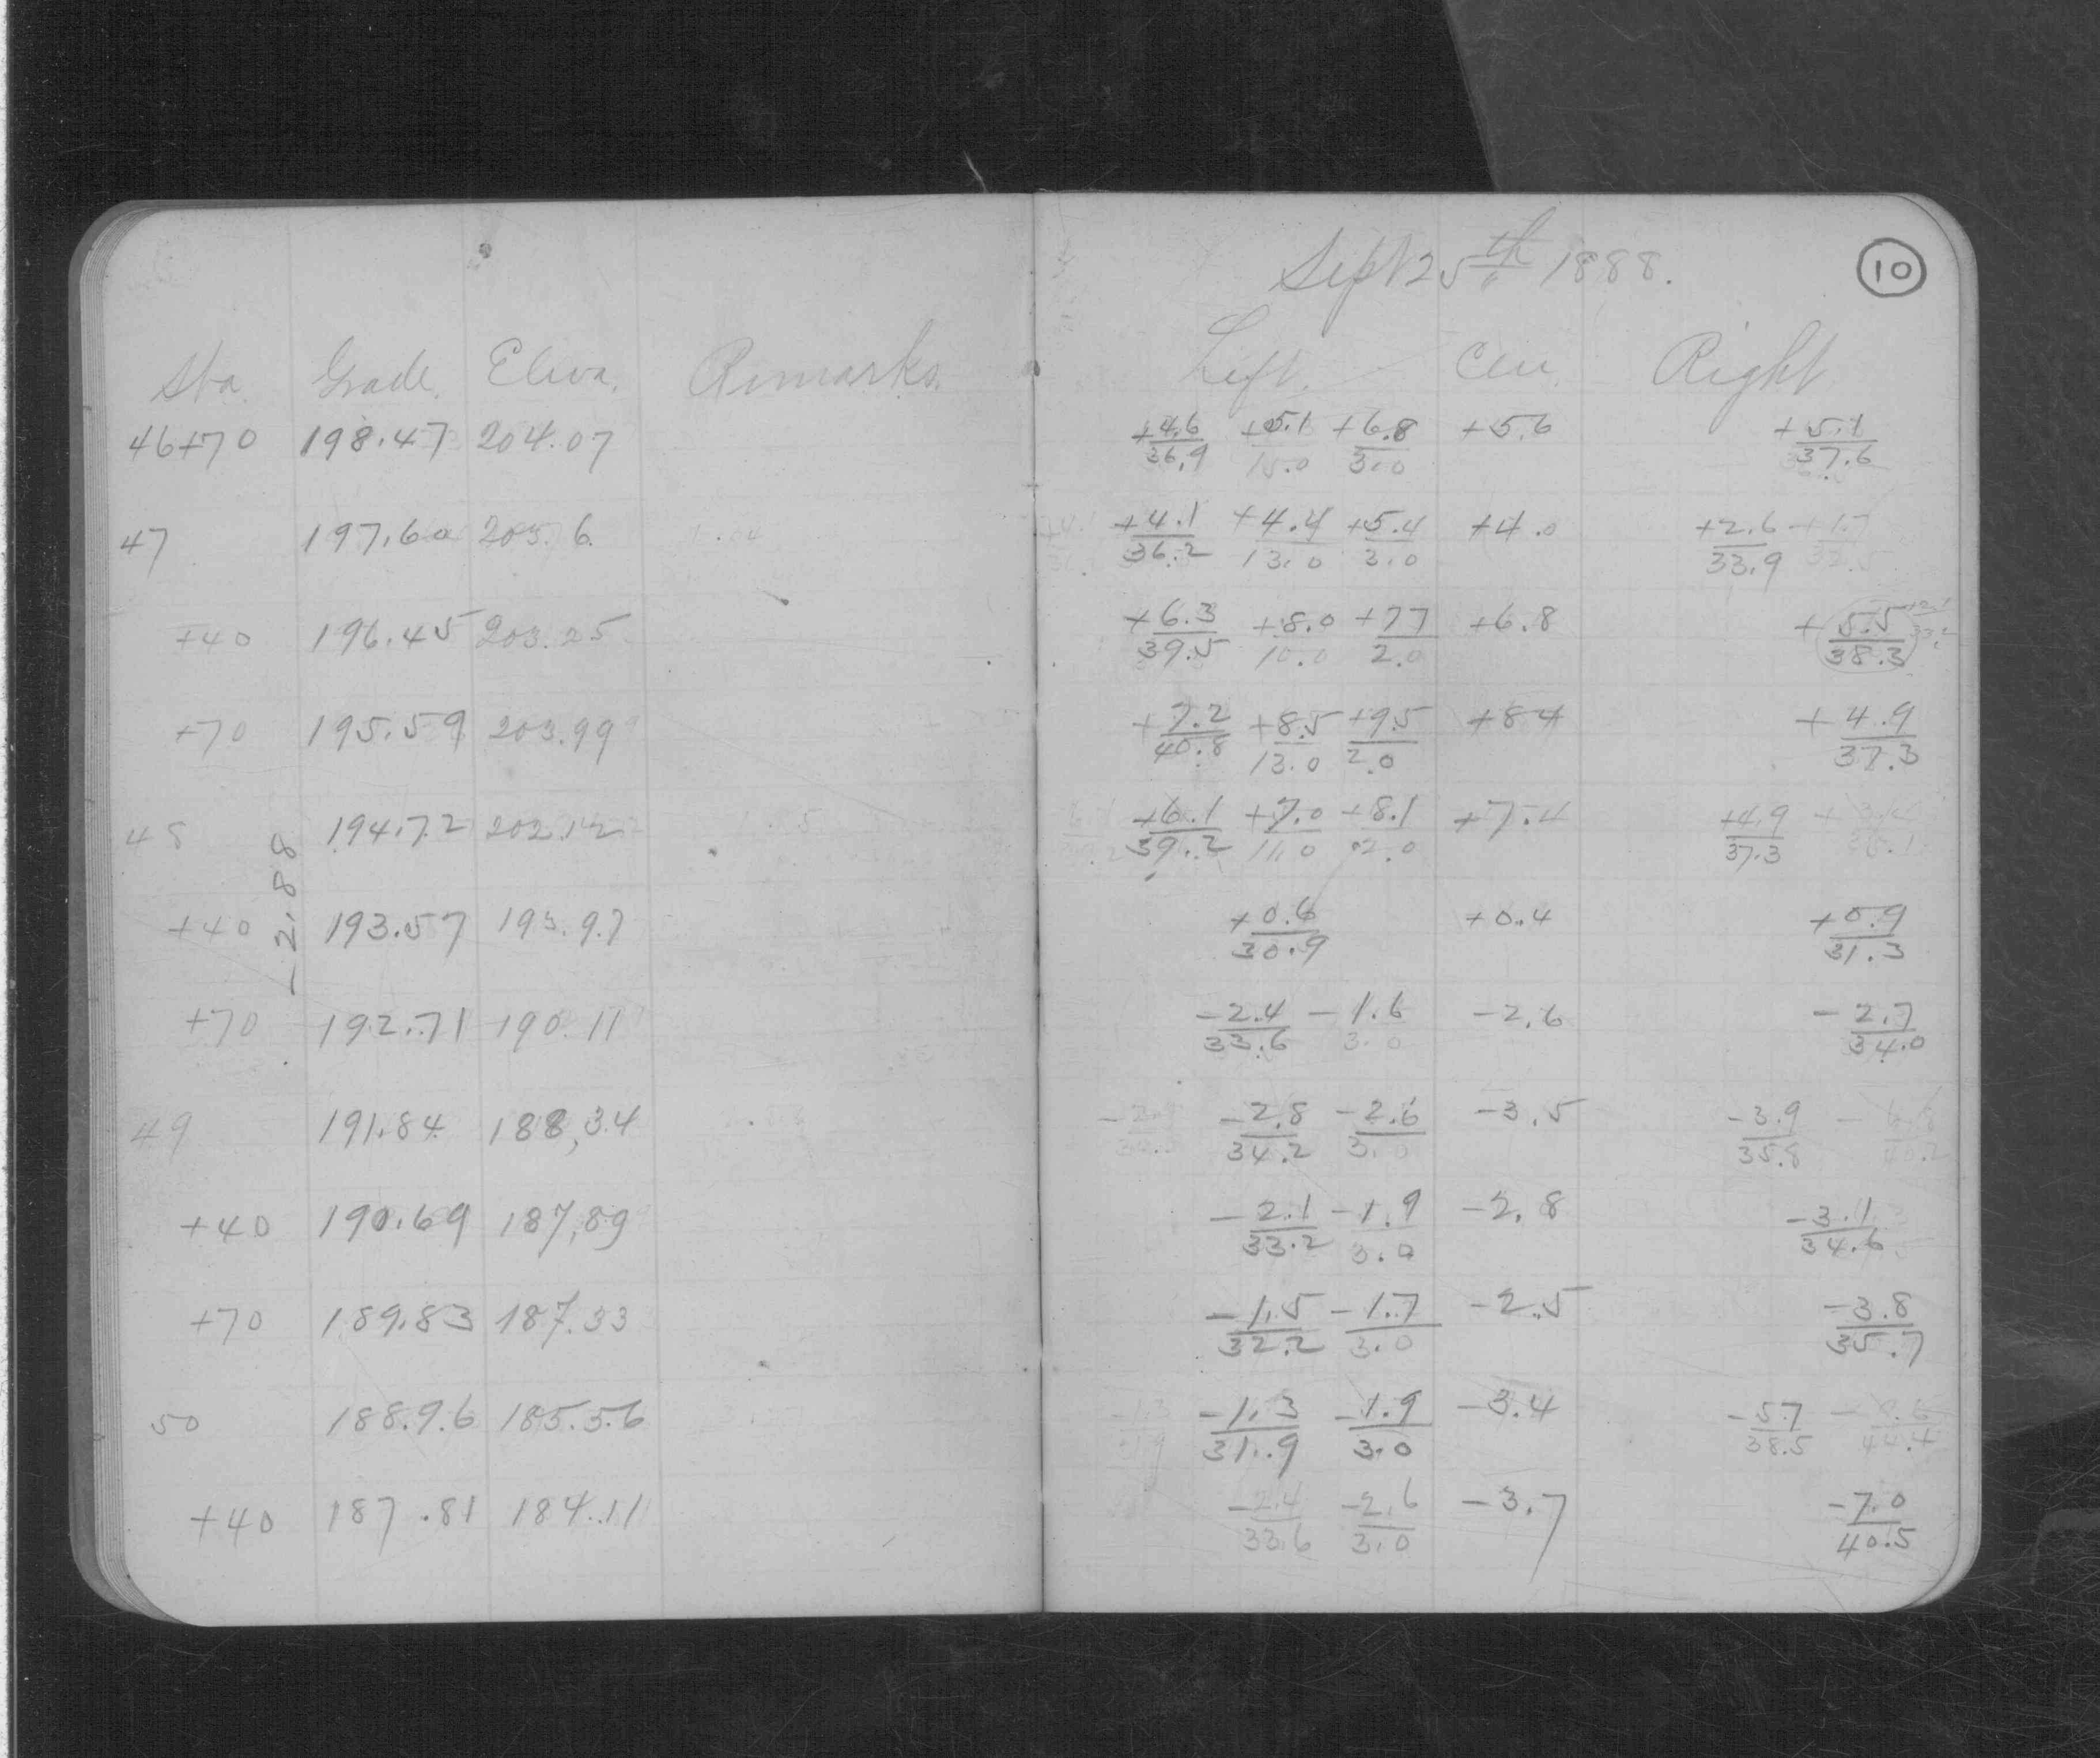 Sept 25th 1888.
10
Sta. Grade. Eleva. Remarks.
Left. Cen. Right
46+70 198.47 204.07
+4.6 +5.1 +6.8 +5.6 +5.1
36.9 15.0 3.0 37.6
47 197.60 6.
+4.1 +4.4 +5.4 +4.0 +2.6
36.2 13.0 3.0 33.9
+40 196.45 203.25
+6.3 +8.0 +77 +6.8 +5.5
39.5 10.0 2.0 38.3
+70 195.59 203.99
+7.2 +8.5 +9.5 +8.4 +4.9
40.8 13.0 2.0 37.3
48 194.72 202.12
+6.1 +7.0 +8.1 +7.4 +4.9
39.2 11.0 2.0 37.3
-2.88
+40 193.57 193.97
+0.6 +0.4 +0.9
30.9 31.3
+70 192.71 190.11
-2.4 -1.6 -2.6 -2.7
33.6 3.0 34.0
49 191.84 188.34
-2.8 -2.6 -3.5 -3.9
34.2 3.0 35.8
+40 190.69 187.89
-2.1 -1.9 -2.8 -3.1
33.2 3.0 34.6
+70 189.83 187.33
-1.5 -1.7 -2.5 -3.8
32.2 3.0 35.7
50 188.96 185.56
-1.3 -1.9 -3.4 -5.7
31.9 3.0 38.5
+40 187.81 184.11
-2.4 -2.6 -3.7 -7.0
33.6 3.0 40.5